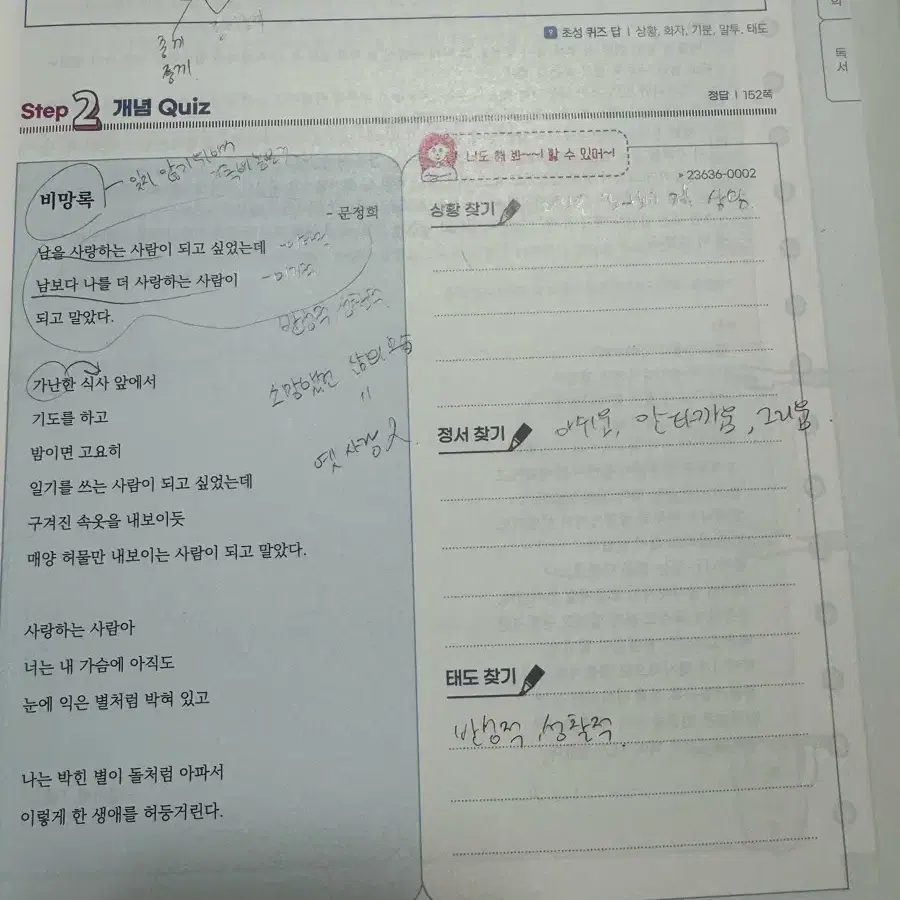 중개
중개
9 초성 퀴즈 답 | 상황, 화자, 기분, 말투, 태도
독서
Step 2 개념 Quiz
정답 | 152쪽
너도 해 봐~~! 할 수 있어~!
▸23636-0002
비망록
잊지 않기 위해
- 문정희
남을 사랑하는 사람이 되고 싶었는데
- 이타적
남보다 나를 더 사랑하는 사람이
- 이기적
되고 말았다.
반성적 성찰적
가난한 식사 앞에서
기도를 하고
밤이면 고요히
일기를 쓰는 사람이 되고 싶었는데
구겨진 속옷을 내보이듯
매양 허물만 내보이는 사람이 되고 말았다.
소망했던 삶의 모습
"
옛 사랑
사랑하는 사람아
너는 내 가슴에 아직도
눈에 익은 별처럼 박혀 있고
나는 박힌 별이 돌처럼 아파서
이렇게 한 생애를 허둥거린다.
상황 찾기
상황
정서 찾기
아쉬움, 안타까움, 그리움.
태도 찾기
반성적, 성찰적